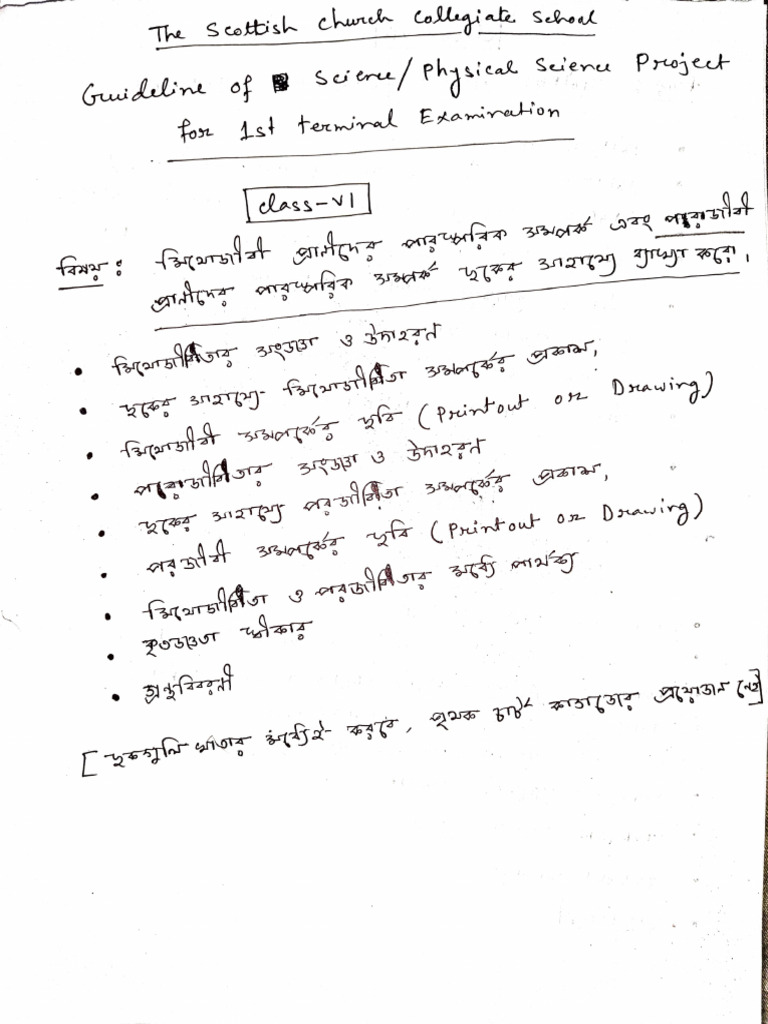 The Scottish Church Collegiate School
Guideline of Science/Physical Science Project
for 1st terminal Examination
class-VI
বিষয়: মিথোজীবী প্রাণীদের পারস্পরিক সম্পর্ক এবং পরজীবী
প্রাণীদের পারস্পরিক সম্পর্ক ছকের সাহায্যে ব্যাখ্যা করো।
• মিথোজীবিতার সংজ্ঞা ও উদাহরণ
• ছকের সাহায্যে মিথোজীবিতা সম্পর্কের প্রকাশ,
• মিথোজীবী সম্পর্কের ছবি (Printout or Drawing)
• পরজীবিতার সংজ্ঞা ও উদাহরণ
• ছকের সাহায্যে পরজীবিতা সম্পর্কের প্রকাশ,
• পরজীবী সম্পর্কের ছবি (Printout or Drawing)
• মিথোজীবিতা ও পরজীবিতার মধ্যে পার্থক্য
• কৃতজ্ঞতা স্বীকার
• গ্রন্থবিবরণী
[ছকগুলি খাতার মধ্যেই করবে, পৃথক চার্ট কাগজের প্রয়োজন নেই]